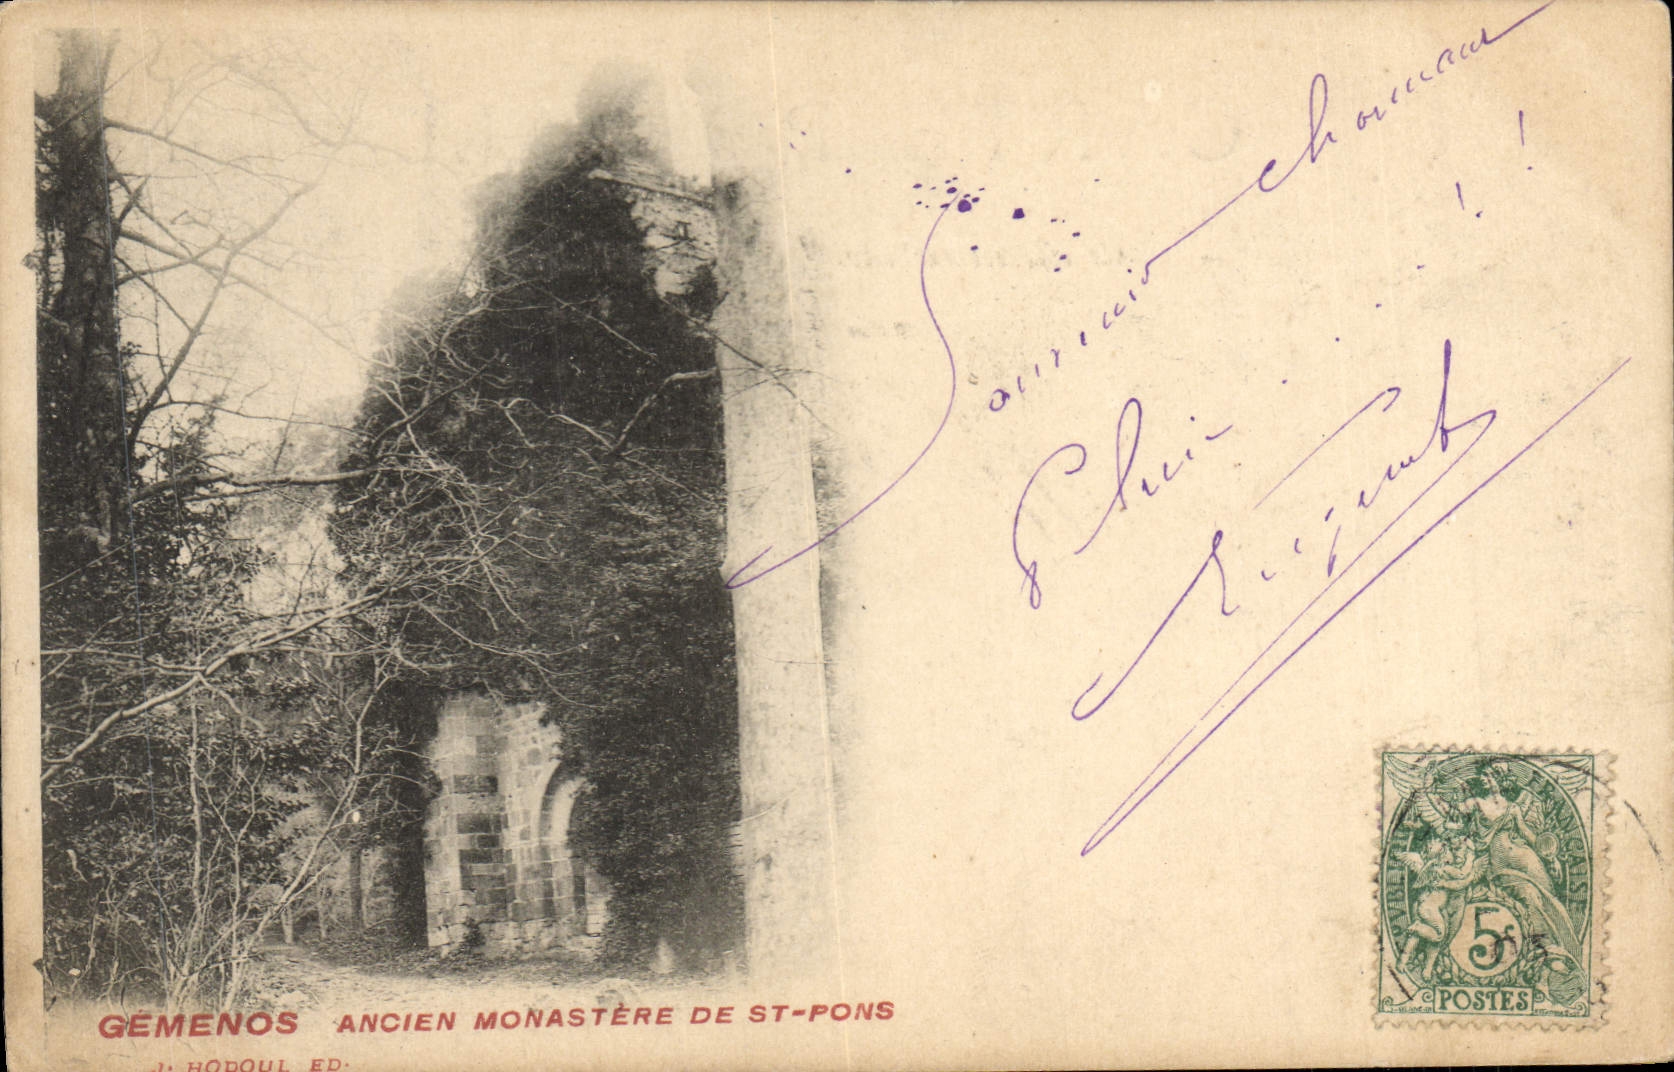 Souvenir charmant
! !
GÉMENOS ANCIEN MONASTÈRE DE ST-PONS
J. HODOUL ED.
RÉPUBLIQUE FRANÇAISE
5c
POSTES